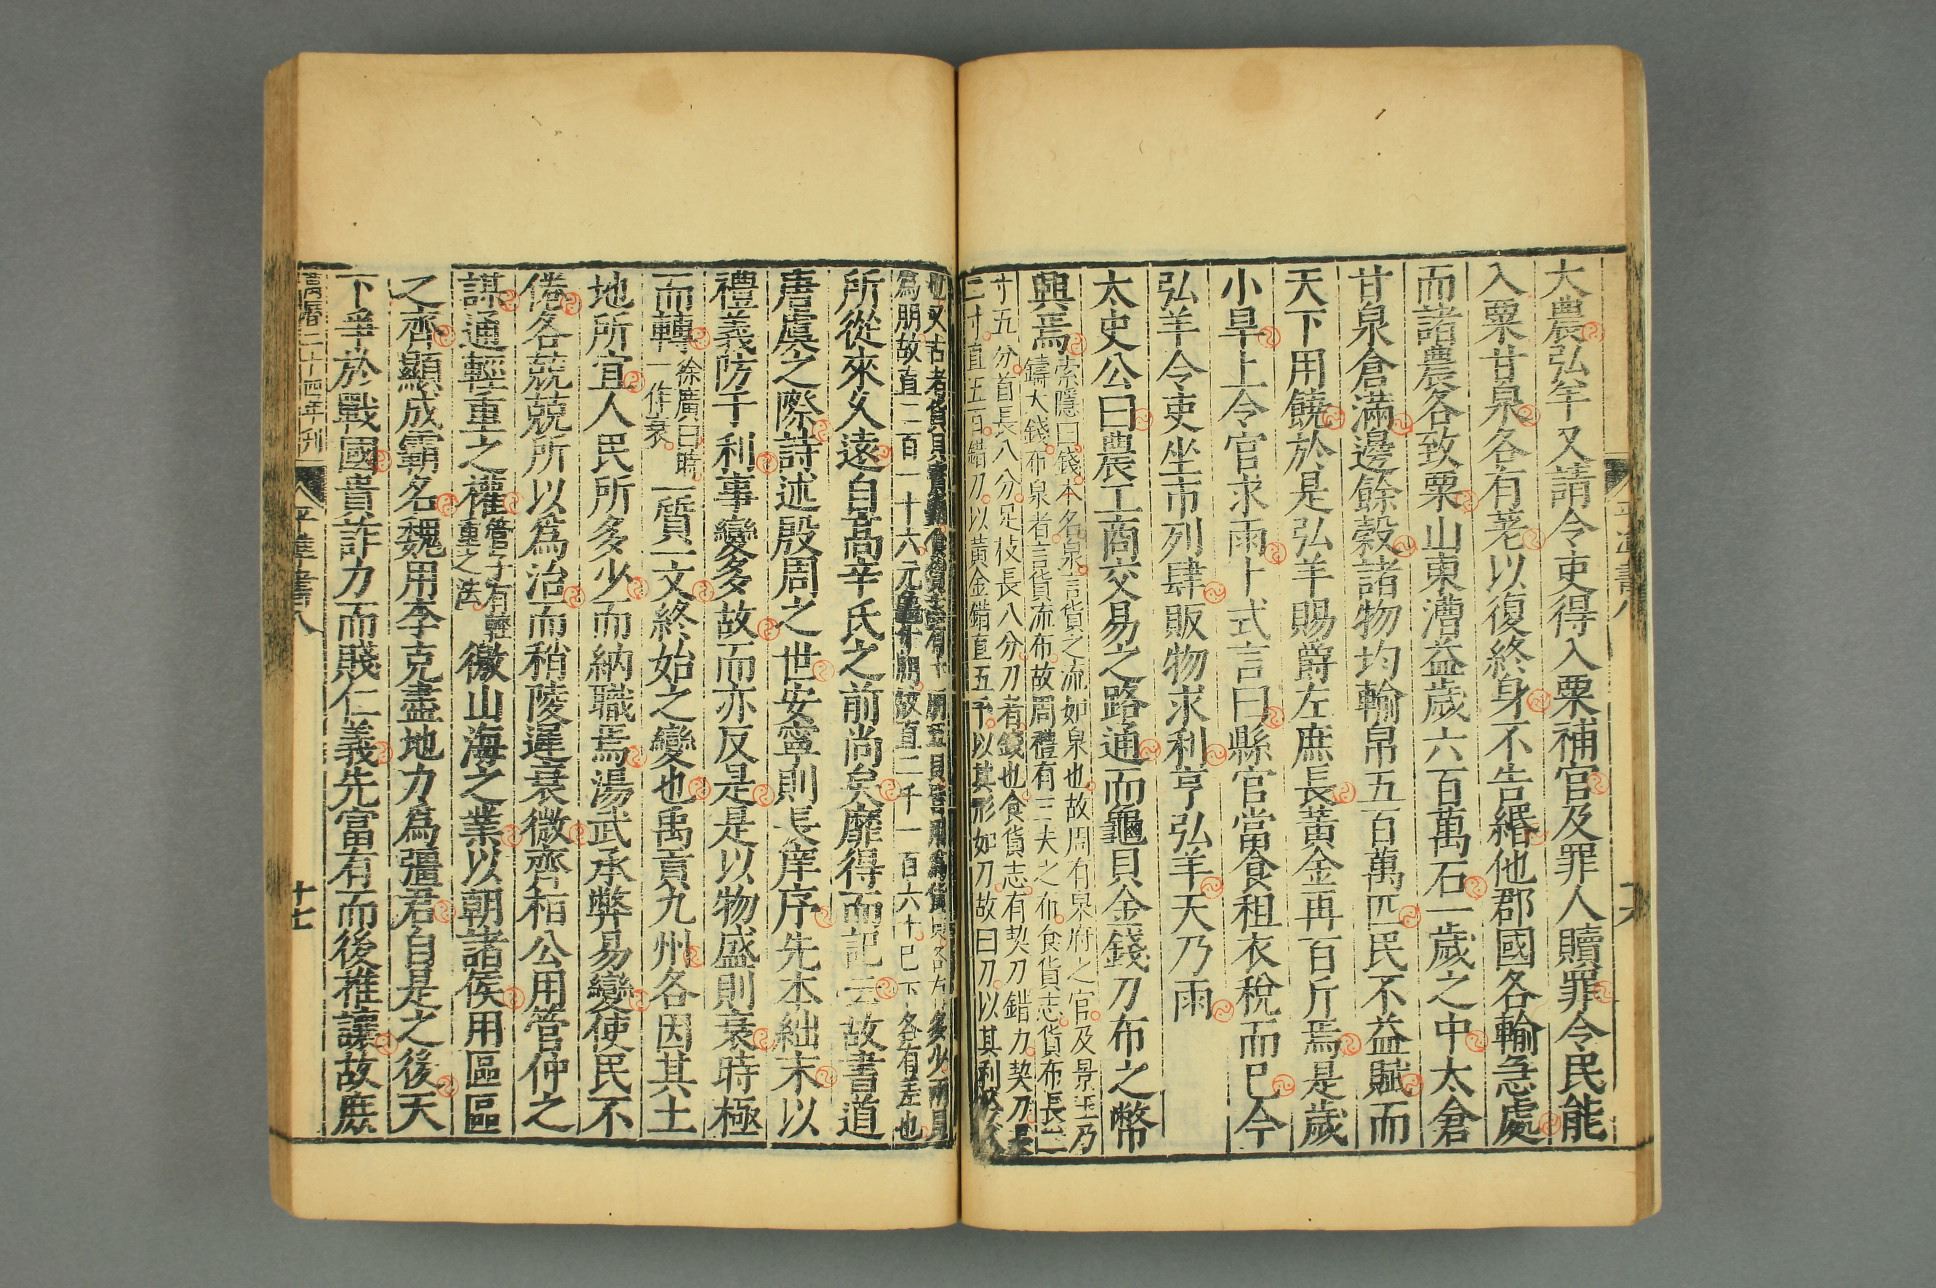 大農弘羊又請令吏得入粟補官及罪人贖罪令民能
入粟甘泉各有差以復終身不告緡他郡國各輸急處
而諸農各致粟山東漕益歲六百萬石一歲之中太倉
甘泉倉滿邊餘穀諸物均輸帛五百萬匹民不益賦而
天下用饒於是弘羊賜爵左庶長黃金再百斤焉是歲
小旱上令官求雨卜式言曰縣官當食租衣稅而已今
弘羊令吏坐市列肆販物求利亨弘羊天乃雨
太史公曰農工商交易之路通而龜貝金錢刀布之幣
興焉
索隱曰錢本名泉言貨之流如泉也故周有泉府之官及景王乃
鑄大錢布泉者言貨流布故周禮有三夫之布食貨志貨布長二
寸五分首長八分足枝長八分刀者錢也食貨志有契刀錯刀契刀長
二寸直五百錯刀以黃金錯直五千以其形如刀故曰刀以其利於人
也又古者貨貝寶龜食貨志有十朋五貝皆用為貨各有多少兩貝
為朋故直二百一十六元龜十朋故直二千一百六十已下各有差也
所從來久遠自高辛氏之前尚矣靡得而記云故書道
唐虞之際詩述殷周之世安寧則長庠序先本絀末以
禮義防于利事變多故而亦反是是以物盛則衰時極
而轉
徐廣曰時
一作衰
一質一文終始之變也禹貢九州各因其土
地所宜人民所多少而納職焉湯武承弊易變使民不
倦各兢兢所以為治而稍陵遲衰微齊桓公用管仲之
謀通輕重之權
管子有輕
重之法
徼山海之業以朝諸侯用區區
之齊顯成霸名魏用李克盡地力為彊君自是之後天
下爭於戰國貴詐力而賤仁義先富有而後推讓故庶
萬曆二十四年刊
平準書八
十七